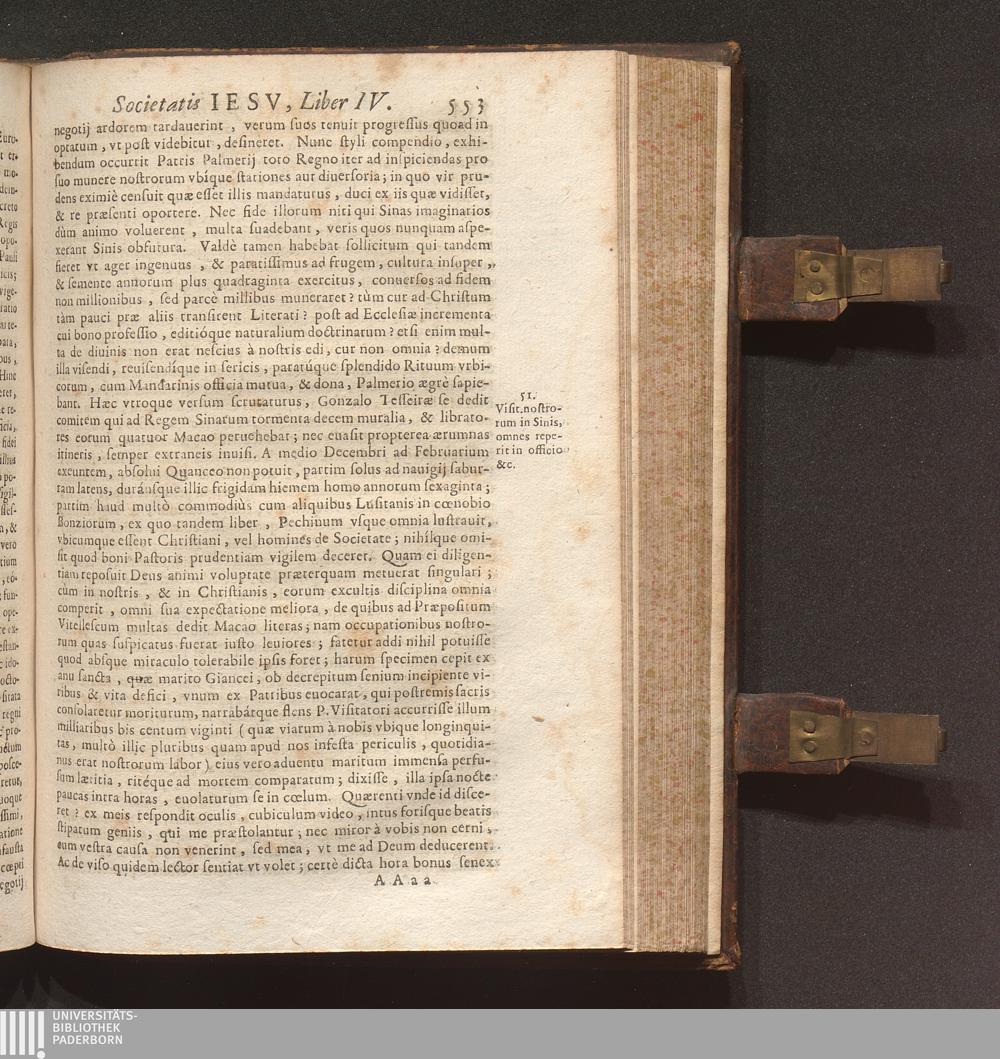 Societatis IESV, Liber IV. 553
negotij ardorem tardauerint, verum suos tenuit progressus quoad in
optatum, vt post videbitur, desineret. Nunc styli compendio, exhi-
bendum occurrit Patris Palmerij toto Regno iter ad inspiciendas pro
suo munere nostrorum vbique stationes aut diuersoria; in quo vir pru-
dens eximiè censuit quæ esset illis mandaturus, duci ex iis quæ vidisset,
& re præsenti oportere. Nec fide illorum niti qui Sinas imaginarios
dùm animo voluerent, multa suadebant, veris quos nunquam aspe-
xerant Sinis obfutura. Valdè tamen habebat sollicitum qui tandem
fieret vt ager ingenuus, & paratissimus ad frugem, cultura insuper,
& semente annorum plus quadraginta exercitus, conuersos ad fidem
non millionibus, sed parcè millibus muneraret? tùm cur ad Christum
tàm pauci præ aliis transirent Literati? post ad Ecclesiæ incrementa
cui bono professio, editióque naturalium doctrinarum? etsi enim mul-
ta de diuinis non erat nescius à nostris edi, cur non omnia? demum
illa visendi, reuisendíque in sericis, paratúque splendido Rituum vrbi-
corum, cum Mandarinis officia mutua, & dona, Palmerio ægrè sapie-
bant. Hæc vtroque versum scrutaturus, Gonzalo Tesseiræ se dedit
comitem qui ad Regem Sinarum tormenta decem muralia, & librato-
res eorum quatuor Macao peruehebat; nec euasit propterea ærumnas
itineris, semper extraneis inuisi. A medio Decembri ad Februarium
exeuntem, absolui Quanceo non potuit, partim solus ad nauigij sabur-
ram latens, duránsque illic frigidam hiemem homo annorum sexaginta;
partim haud multò commodiùs cum aliquibus Lusitanis in cœnobio
Bonziorum, ex quo tandem liber, Pechinum vsque omnia lustrauit,
vbicumque essent Christiani, vel homines de Societate; nihilque omi-
sit quod boni Pastoris prudentiam vigilem deceret. Quam ei diligen-
tiam reposuit Deus animi voluptate præterquam metuerat singulari;
cùm in nostris, & in Christianis, eorum excultis disciplina omnia
comperit, omni sua expectatione meliora, de quibus ad Præpositum
Vitellescum multas dedit Macao literas; nam occupationibus nostro-
rum quas suspicatus fuerat iusto leuiores; fatetur addi nihil potuisse
quod absque miraculo tolerabile ipsis foret; harum specimen cepit ex
anu sancta, quæ marito Giancei, ob decrepitum senium incipiente vi-
ribus & vita defici, vnum ex Patribus euocarat, qui postremis sacris
consolaretur moriturum, narrabátque flens P. Visitatori accurrisse illum
milliaribus bis centum viginti (quæ viarum à nobis vbique longinqui-
tas, multò illic pluribus quam apud nos infesta periculis, quotidia-
nus erat nostrorum labor) eius vero aduentu maritum immensa perfu-
sum lætitia, ritéque ad mortem comparatum; dixisse, illa ipsa nocte
paucas intra horas, euolaturum se in cœlum. Quærenti vnde id disce-
ret? ex meis respondit oculis, cubiculum video, intus forisque beatis
stipatum geniis, qui me præstolantur; nec miror à vobis non cerni,
eum vestra causa non venerint, sed mea, vt me ad Deum deducerent.
Ac de viso quidem lector sentiat vt volet; certè dicta hora bonus senex
AAaa
51.
Visit. nostro-
rum in Sinis,
omnes repe-
rit in officio
&c.
UNIVERSITÄTS-
BIBLIOTHEK
PADERBORN